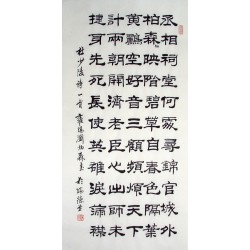 丞相祠堂何處尋錦官城外
柏森〻映階碧草自春色隔葉
黃鸝空好音三顧頻煩天下
計兩朝開濟老臣心出師未
捷身先死長使英雄淚滿襟
杜少陵詩一首 劉炳森書